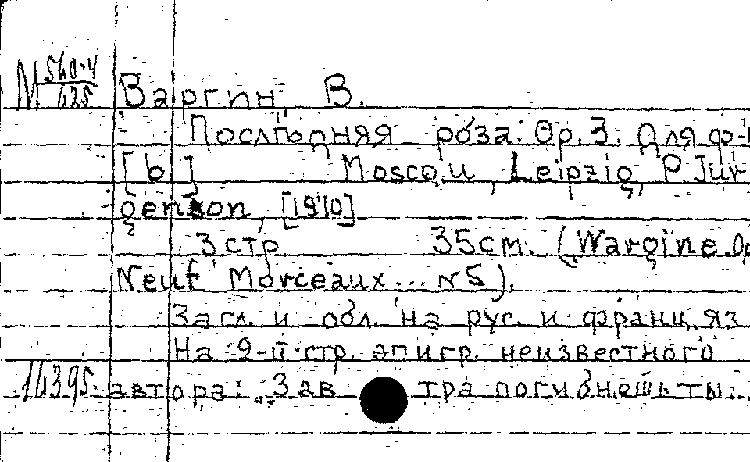 М 560-4/625 Варгин, В.
Последняя роза. Op. 3. Для ф-
[b.] Moscou, Leipzig, P. Jur
genson, [1910]
3 стр. 35 см. (Wargine. Op
Neuf Morceaux... N5).
Загл. и обл. на рус. и франц. яз.
На 2-й стр. эпигр. неизвестного
автора: "Завтра погибнешь ты..